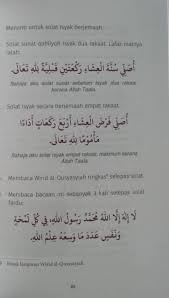 Menanti untuk solat Isyak berjemaah.
Solat sunat qabliyah Isyak dua rakaat. Lafaz niatnya
ialah:
أُصَلِّي سُنَّةَ الْعِشَاءِ رَكْعَتَيْنِ قَبْلِيَّةً لِلَّهِ تَعَالَى.
Bahaja aku solat sunat sebelum Isyak dua rakaat
kerana Allah Taala.
Solat Isyak secara berjemaah empat rakaat.
أُصَلِّي فَرْضَ الْعِشَاءِ أَرْبَعَ رَكَعَاتٍ أَدَاءً
مَأْمُومًا لِلَّهِ تَعَالَى.
aku solat Isyak empat rakaat, makmum kerana
Allah Taala.
Membaca Wirid al-Qusyasyiah ringkas selepas solat.
Membaca bacaan ini sebanyak 3 kali selepas solat
fardu:
لَا إِلَهَ إِلَّا اللهُ مُحَمَّدٌ رَسُولُ اللهِ، فِي كُلِّ لَمْحَةٍ
وَنَفَسٍ عَدَدَ مَا وَسِعَهُ عِلْمُ اللهِ.